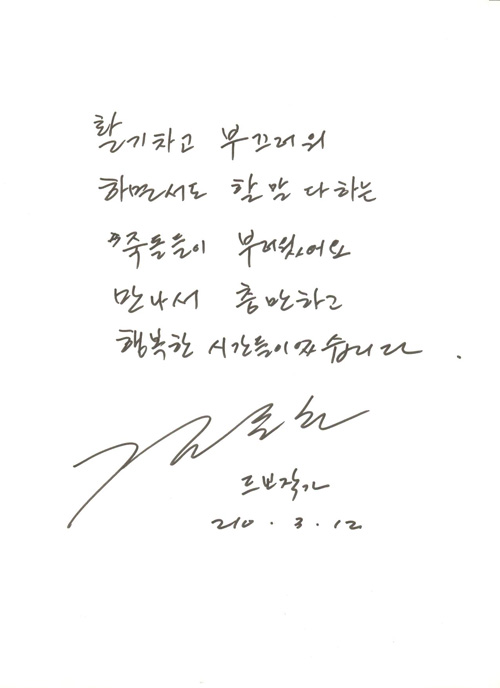 활기차고 부끄러워
하면서도 할 말 다하는
죽돌들이 부러웠어요
만나서 충만하고
행복한 시간들이었습니다.
드라작가
210. 3. 12